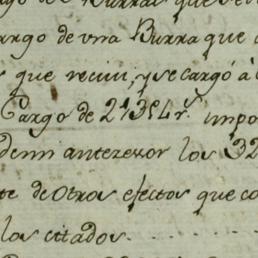 de Burras que se
argo de una Burra que
que recivi, y se cargó á
Cargo de 21354 r.ˢ impo
Denn anterexor los 32
te de otros efectos que co
los citados